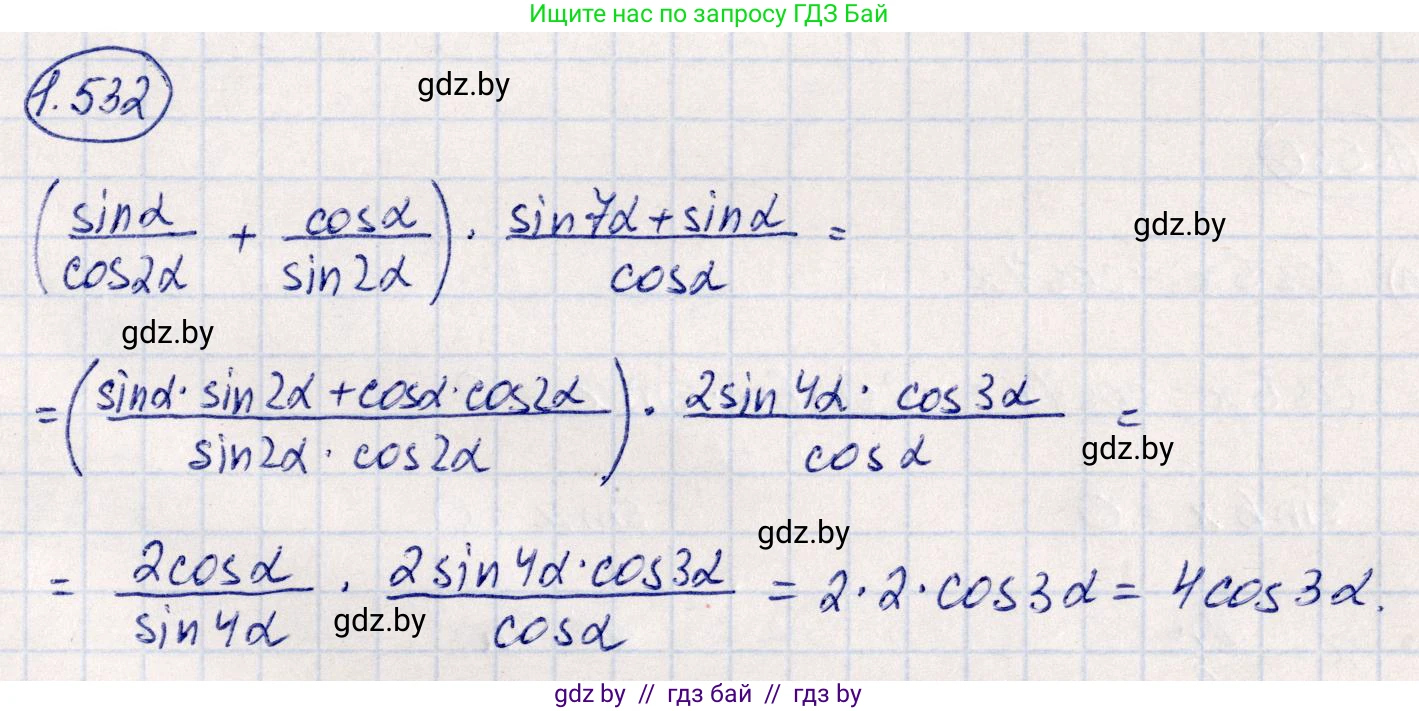 Ищите нас по запросу ГДЗ Бай
1.532
gdz.by
(sinα/cos2α + cosα/sin2α) · (sin7α + sinα)/cosα =
gdz.by
gdz.by
= ((sinα · sin2α + cosα · cos2α)/(sin2α · cos2α)) · (2sin4α · cos3α)/cosα =
gdz.by
gdz.by
= 2cosα/sin4α · (2sin4α · cos3α)/cosα = 2 · 2 · cos3α = 4cos3α.
gdz.by
gdz.by // гдз бай // гдз by